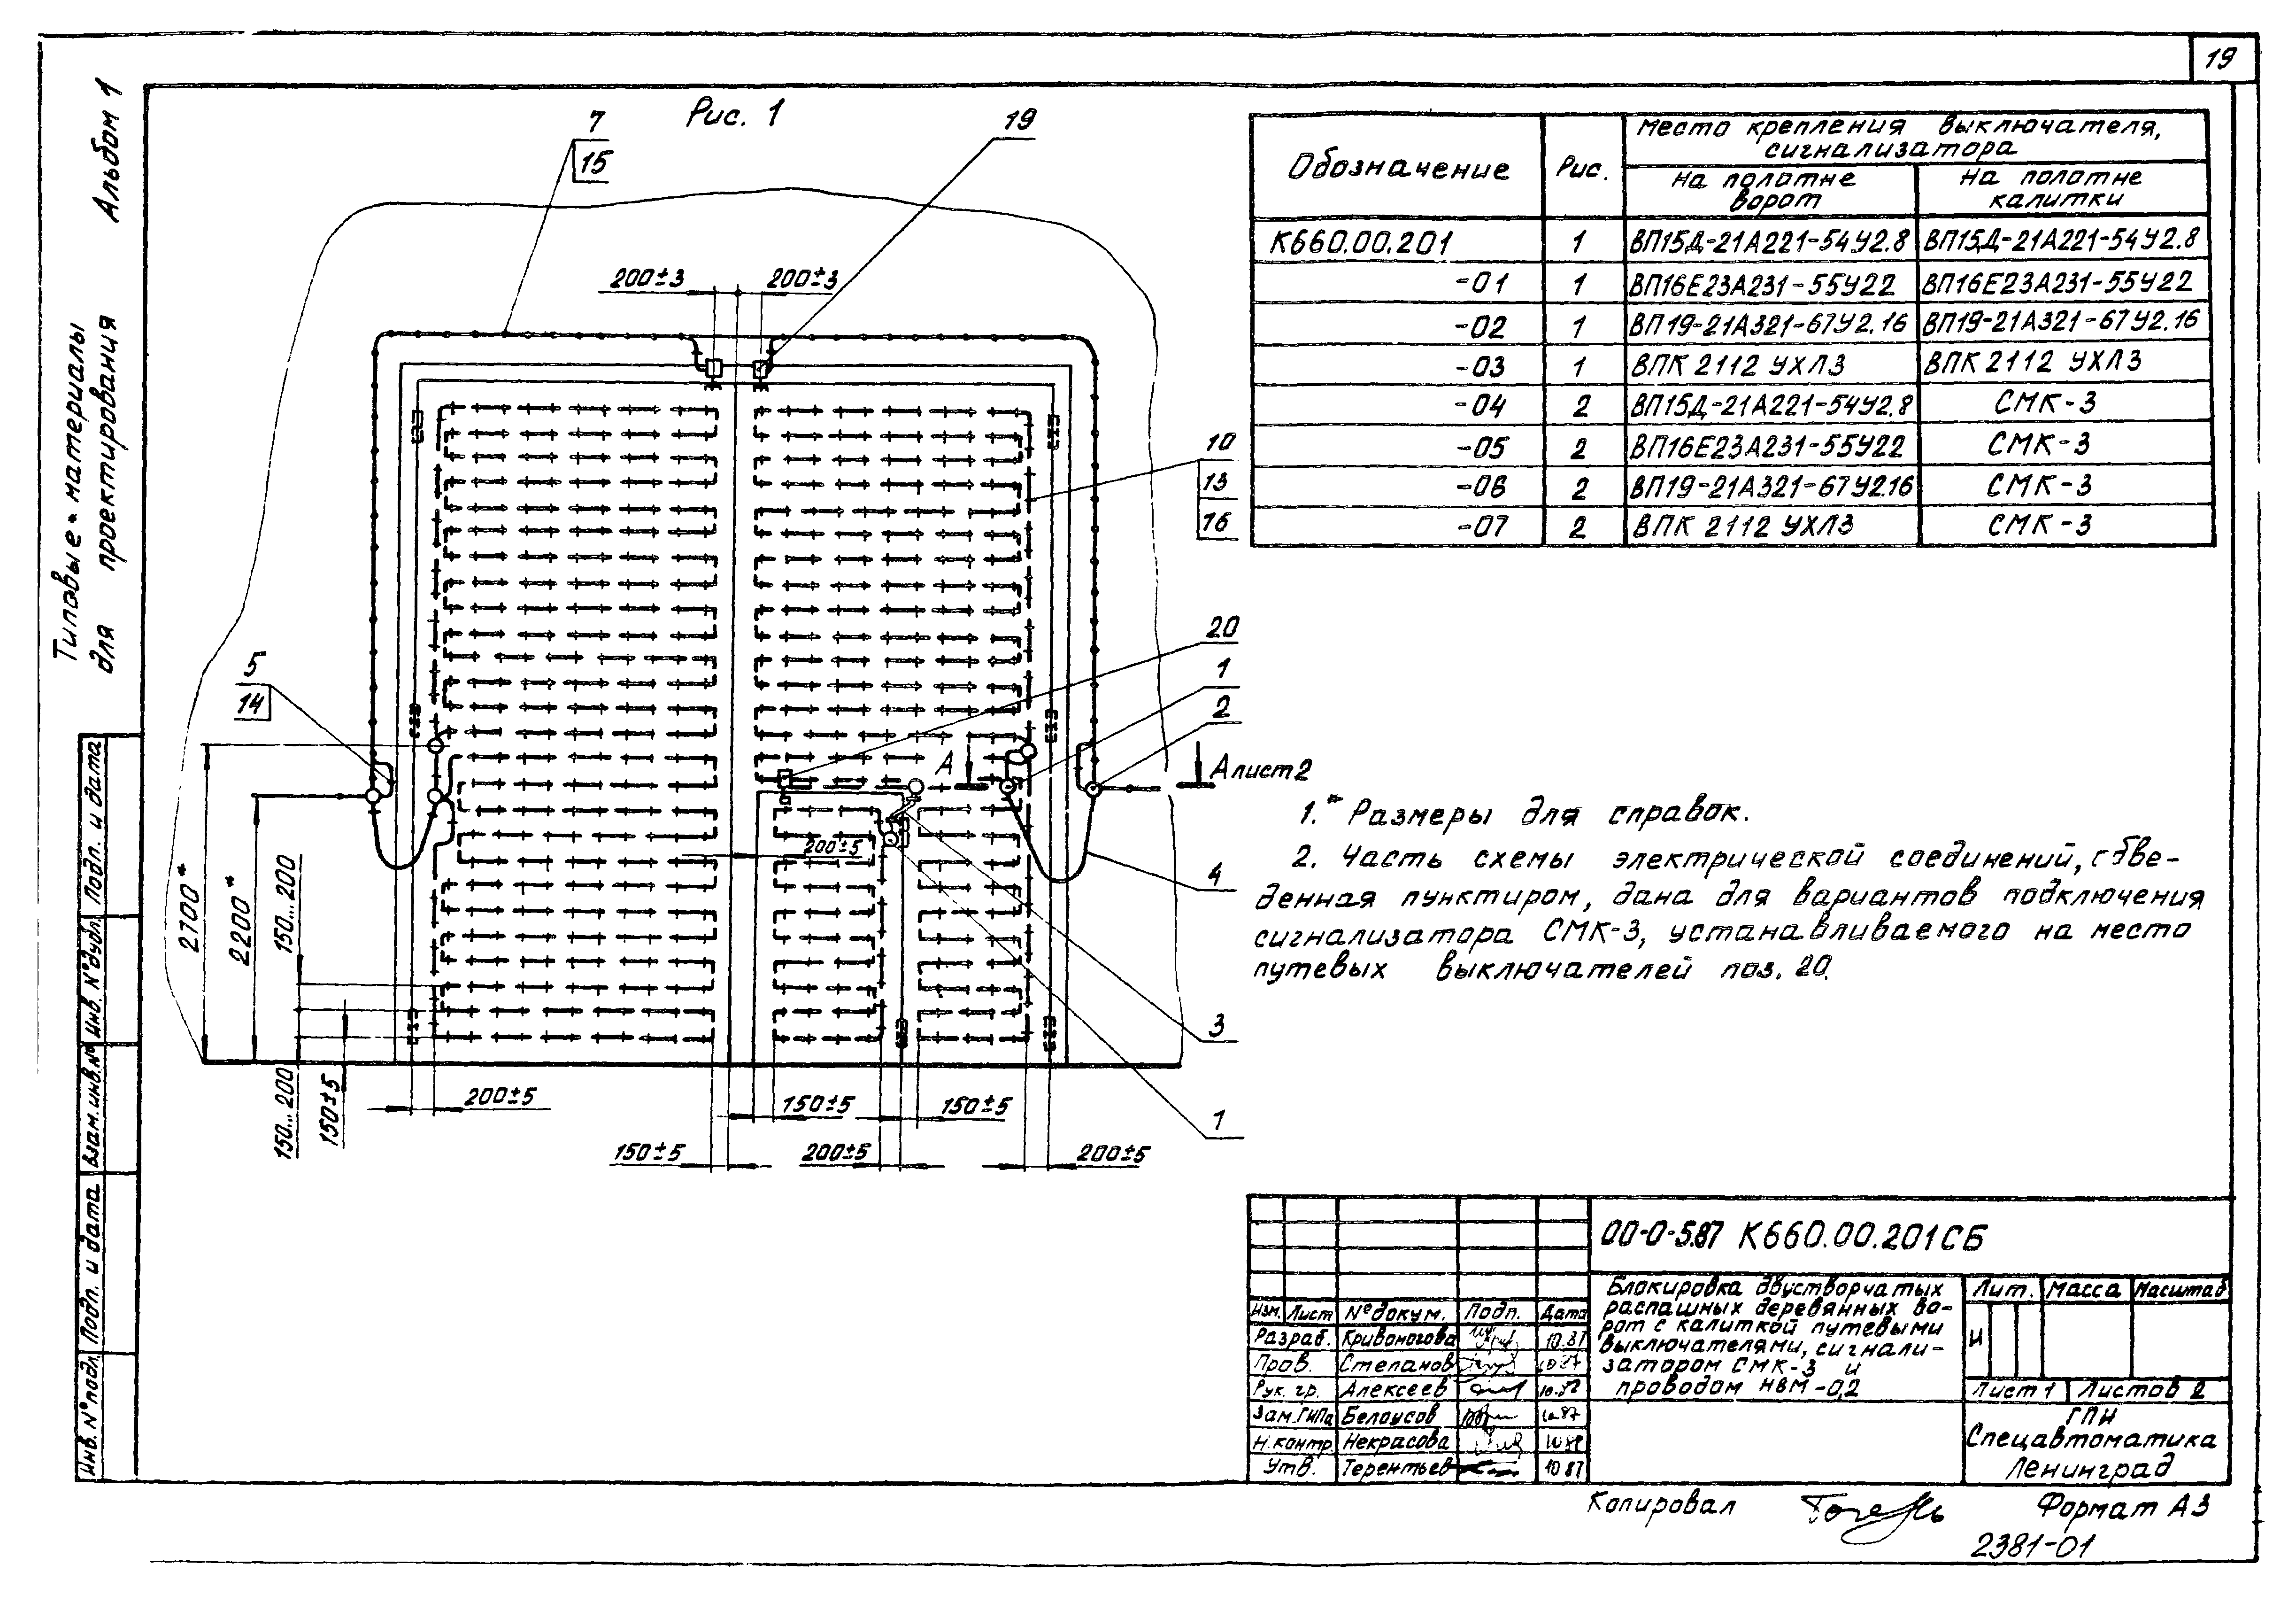 19
Типовые материалы
для проектирования
Альбом 1
Рис. 1
7
15
19
200±3
200±3
10
13
16
20
1
2
5
14
А
А лист 2
2700*
2200*
150...200
200±5
4
3
1
150...200
150±5
200±5
150±5
150±5
150±5
200±5
200±5
Обозначение
Рис.
Место крепления выключателя,
сигнализатора
на полотне
ворот
на полотне
калитки
К660.00.201 1 ВП15Д-21А221-54У2.8 ВП15Д-21А221-54У2.8
-01 1 ВП16Е23А231-55У22 ВП16Е23А231-55У22
-02 1 ВП19-21А321-67У2.16 ВП19-21А321-67У2.16
-03 1 ВПК 2112 УХЛ3 ВПК 2112 УХЛ3
-04 2 ВП15Д-21А221-54У2.8 СМК-3
-05 2 ВП16Е23А231-55У22 СМК-3
-06 2 ВП19-21А321-67У2.16 СМК-3
-07 2 ВПК 2112 УХЛ3 СМК-3
1.* Размеры для справок.
2. Часть схемы электрической соединений, обве-
денная пунктиром, дана для вариантов подключения
сигнализатора СМК-3, устанавливаемого на место
путевых выключателей поз. 20.
Инв. № подл. Подп. и дата Взам. инв. № Инв. № дубл. Подп. и дата
00-0-5.87 К660.00.201СБ
Блокировка двустворчатых
распашных деревянных во-
рот с калиткой путевыми
выключателями, сигнали-
затором СМК-3 и
проводом НВМ-0,2
Лит. Масса Масштаб
И
Лист 1 Листов 2
ГПИ
Спецавтоматика
Ленинград
Изм. Лист № докум. Подп. Дата
Разраб. Кривоногова 10.87
Пров. Степанов 10.87
Рук. гр. Алексеев 10.87
Зам. ГИПа Белоусов 10.87
Н. контр. Некрасова 10.87
Утв. Терентьев 10 87
Копировал
Формат А3
2381-01